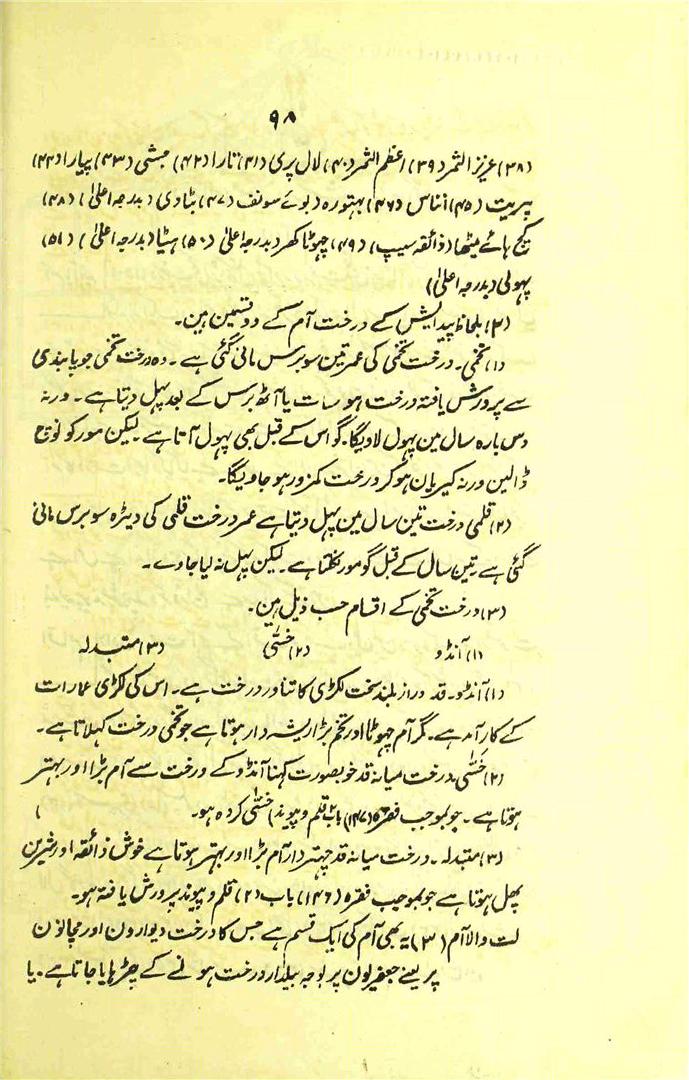 ۹۸
(۳۸) عزیز الثمر (۳۹) اعظم الثمر (۴۰) لال پری (۴۱) تارا (۴۲) حبشی (۴۳) پیارا (۴۴)
پربت (۴۵) انناس (۴۶) بہتورہ (بوئے سونف (۴۷) بٹادی (بدرجہ اعلیٰ) (۴۸)
کیچ ہائے میٹھا (ذائقہ سیپ) (۴۹) چہوٹا کھر (بدرجہ اعلیٰ (۵۰) ہٹیا (بدرجہ اعلیٰ) (۵۱)
پہولی (بدرجہ اعلیٰ)
(۲) بلحاظ پیدایش کے درخت آم کے دو قسمین ہین۔
(۱) تخمی۔ درخت تخمی کی عمر تین سو برس مانی گئی ہے۔ وہ درخت تخمی جو پابندی
سے پرورش یافتہ درخت ہو سات یا آٹھ برس کے بعد پہل دیتا ہے۔ ورنہ
دس بارہ سال مین پہول لادیگا۔ گو اس کے قبل بھی پہول آتا ہے۔ لیکن مور کو نوچ
ڈالین ورنہ کیریان ہو کر درخت کمزور ہو جاویگا۔
(۲) قلمی درخت تین سال مین پہل دیتا ہے عمر درخت قلمی کی دیڑہ سو برس مانی
گئی ہے۔ تین سال کے قبل گو مور نکلتا ہے۔ لیکن پہل نہ لیا جاوے۔
(۳) درخت تخمی کے اقسام حسب ذیل ہین۔
(۱) آنڈو (۲) خسّی (۳) متبدلہ
(۱) آنڈو۔ قد دراز بلند سخت لکڑی کا تناور درخت ہے۔ اس کی لکڑی عمارات
کے کار آمد ہے۔ مگر آم چہوٹا اور تخم بڑا ریشہ دار ہوتا ہے جو تخمی درخت کہلاتا ہے۔
(۲) خسّی۔ درخت میانہ قد خوبصورت کہنا آنڈو کے درخت سے آم بڑا اور بہتر
ہوتا ہے۔ جو بموجب فقرہ (۱۴۷) باب ۲ قلم و پیوند خسّی کردہ ہو۔
(۳) متبدلہ۔ درخت میانہ قد چہتر دار آم بڑا اور بہتر ہوتا ہے خوش ذائقہ اور شیرین
پھل ہوتا ہے جو بموجب فقرہ (۱۴۶) باب (۲) قلم و پیوند پرورش یافتہ ہو۔
لت والا آم (۳) یہ بھی آم کی ایک قسم ہے جس کا درخت دیوارون اور مچانون
پر یعنے جعفریون پر بوجہ بیلدار درخت ہونے کے چڑہایا جاتا ہے۔ یا